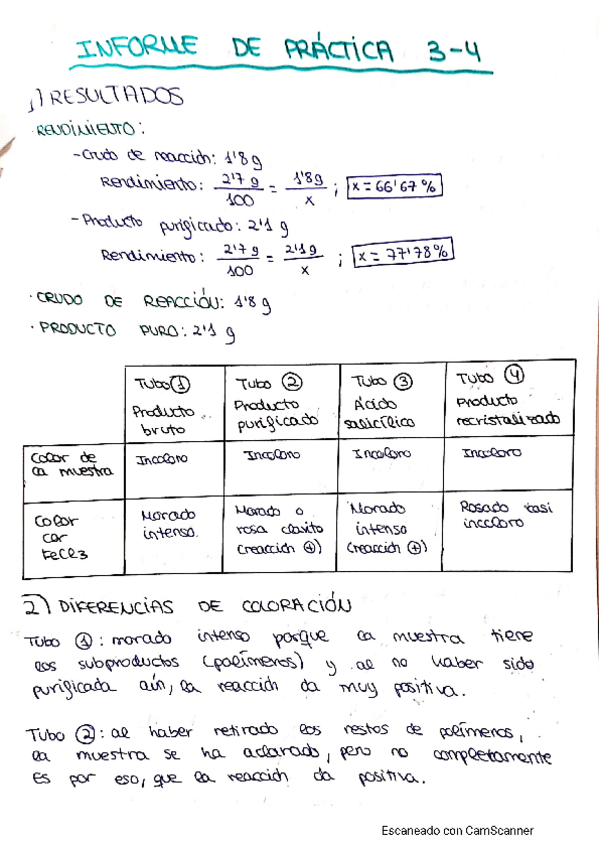 INFORME DE PRÁCTICA 3-4
1) RESULTADOS
· RENDIMIENTO:
- Crudo de reacción: 1'8 g
Rendimiento: 2'7 g / 100 = 1'8 g / x ; x = 66'67 %
- Producto purificado: 2'1 g
Rendimiento: 2'7 g / 100 = 2'1 g / x ; x = 77'78 %
· CRUDO DE REACCIÓN: 1'8 g
· PRODUCTO PURO: 2'1 g
Tubo ① Producto bruto
Tubo ② Producto purificado
Tubo ③ Ácido salicílico
Tubo ④ Producto recristalizado
Color de la muestra
Incoloro
Incoloro
Incoloro
Incoloro
Color con FeCl3
Morado intenso.
Morado o rosa clarito (reacción ⊕)
Morado intenso (reacción ⊕)
Rosado casi incoloro
2) DIFERENCIAS DE COLORACIÓN
Tubo ①: morado intenso porque la muestra tiene
los subproductos (polímeros) y al no haber sido
purificada aún, la reacción da muy positiva.
Tubo ②: al haber retirado los restos de polímeros,
la muestra se ha aclarado, pero no completamente
es por eso, que la reacción da positiva.
Escaneado con CamScanner